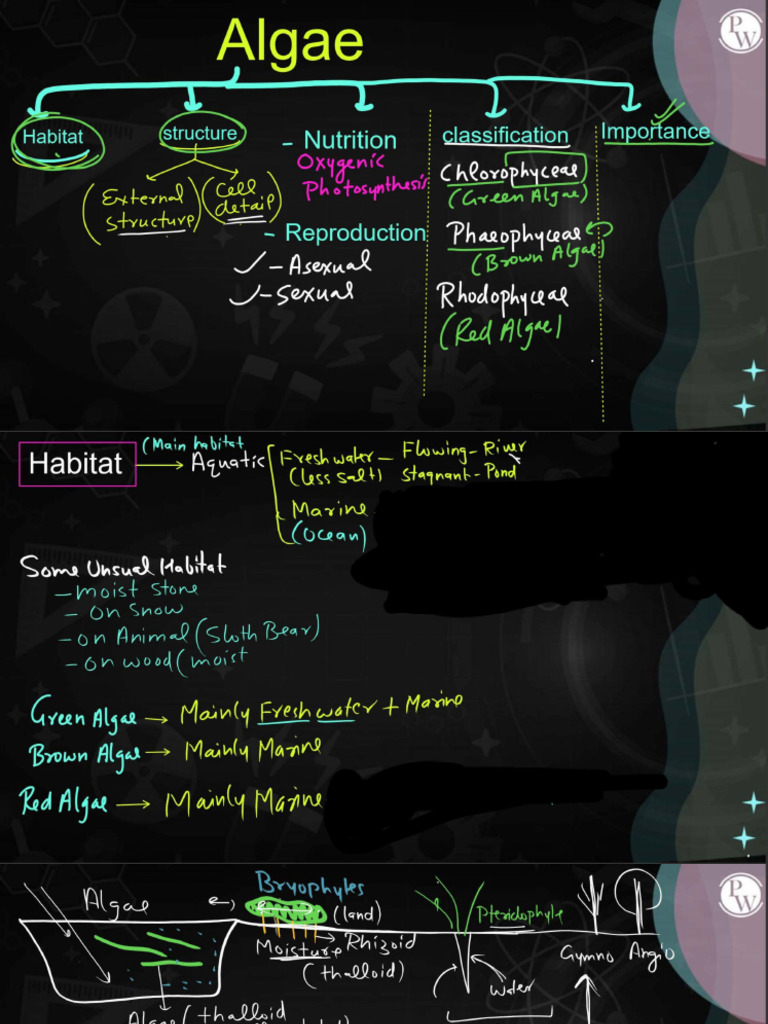 Algae
PW
Habitat
structure
- Nutrition
classification
Importance
Oxygenic
Photosynthesis
(External structure)
(Cell detail)
- Reproduction
- Asexual
- Sexual
Chlorophyceae
(Green Algae)
Phaeophyceae
(Brown Algae)
Rhodophyceae
(Red Algae)
Habitat
(Main habitat
Aquatic
Fresh water - Flowing - River
(less salt) Stagnant - Pond
Marine
(Ocean)
Some Unsual Habitat
- moist stone
- on snow
- on Animal (Sloth Bear)
- on wood (moist
Green Algae → Mainly Fresh water + Marine
Brown Algae → Mainly Marine
Red Algae → Mainly Marine
PW
Algae
Bryophytes
(land)
Moisture Rhizoid
(thalloid)
Pteridophyte
water
Gymno Angio
Algae (thalloid